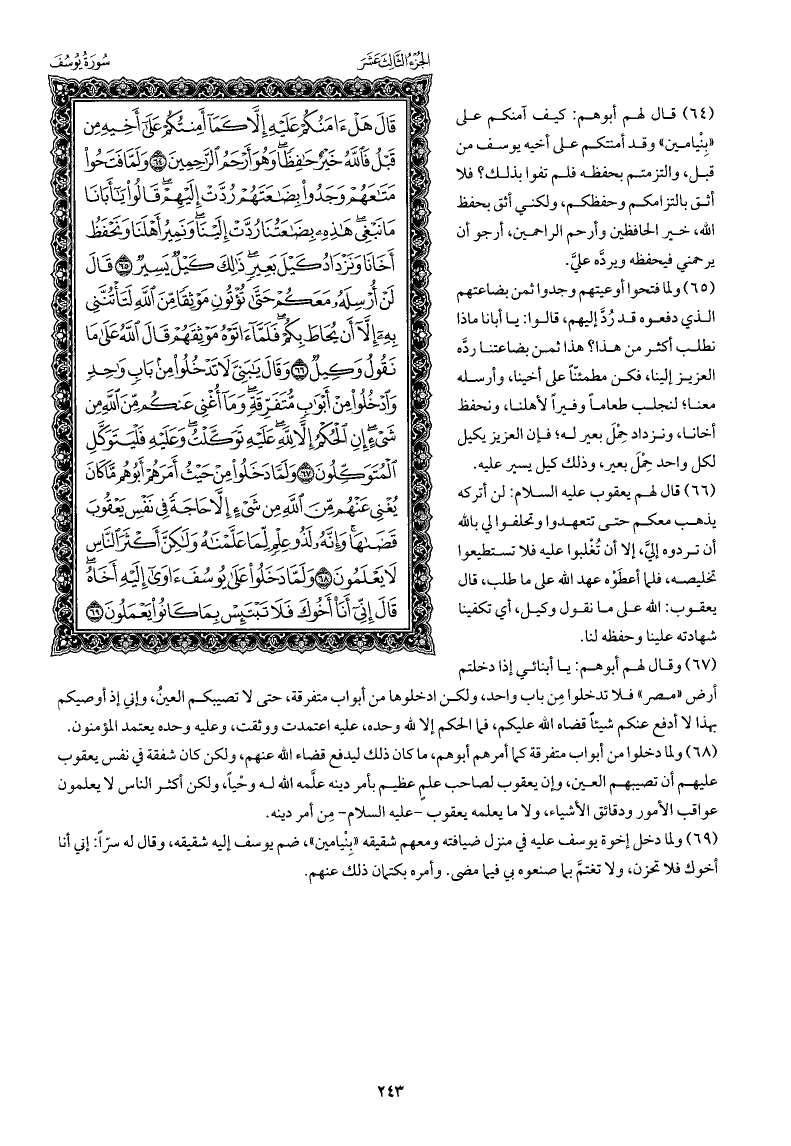 الجزء الثالث عشر
سورة يوسف
قَالَ هَلْ ءَامَنُكُمْ عَلَيْهِ إِلَّا كَمَآ أَمِنتُكُمْ عَلَىٰٓ أَخِيهِ مِن
قَبْلُ فَٱللَّهُ خَيْرٌ حَٰفِظًا ۖ وَهُوَ أَرْحَمُ ٱلرَّٰحِمِينَ ٦٤ وَلَمَّا فَتَحُوا۟
مَتَٰعَهُمْ وَجَدُوا۟ بِضَٰعَتَهُمْ رُدَّتْ إِلَيْهِمْ ۖ قَالُوا۟ يَٰٓأَبَانَا
مَا نَبْغِى ۖ هَٰذِهِۦ بِضَٰعَتُنَا رُدَّتْ إِلَيْنَا ۖ وَنَمِيرُ أَهْلَنَا وَنَحْفَظُ
أَخَانَا وَنَزْدَادُ كَيْلَ بَعِيرٍ ۖ ذَٰلِكَ كَيْلٌ يَسِيرٌ ٦٥ قَالَ
لَنْ أُرْسِلَهُۥ مَعَكُمْ حَتَّىٰ تُؤْتُونِ مَوْثِقًا مِّنَ ٱللَّهِ لَتَأْتُنَّنِى
بِهِۦٓ إِلَّآ أَن يُحَاطَ بِكُمْ ۖ فَلَمَّآ ءَاتَوْهُ مَوْثِقَهُمْ قَالَ ٱللَّهُ عَلَىٰ مَا
نَقُولُ وَكِيلٌ ٦٦ وَقَالَ يَٰبَنِىَّ لَا تَدْخُلُوا۟ مِنۢ بَابٍ وَٰحِدٍ
وَٱدْخُلُوا۟ مِنْ أَبْوَٰبٍ مُّتَفَرِّقَةٍ ۖ وَمَآ أُغْنِى عَنكُم مِّنَ ٱللَّهِ مِن
شَىْءٍ ۖ إِنِ ٱلْحُكْمُ إِلَّا لِلَّهِ ۖ عَلَيْهِ تَوَكَّلْتُ ۖ وَعَلَيْهِ فَلْيَتَوَكَّلِ
ٱلْمُتَوَكِّلُونَ ٦٧ وَلَمَّا دَخَلُوا۟ مِنْ حَيْثُ أَمَرَهُمْ أَبُوهُم مَّا كَانَ
يُغْنِى عَنْهُم مِّنَ ٱللَّهِ مِن شَىْءٍ إِلَّا حَاجَةً فِى نَفْسِ يَعْقُوبَ
قَضَىٰهَا ۚ وَإِنَّهُۥ لَذُو عِلْمٍ لِّمَا عَلَّمْنَٰهُ وَلَٰكِنَّ أَكْثَرَ ٱلنَّاسِ
لَا يَعْلَمُونَ ٦٨ وَلَمَّا دَخَلُوا۟ عَلَىٰ يُوسُفَ ءَاوَىٰٓ إِلَيْهِ أَخَاهُ ۖ
قَالَ إِنِّىٓ أَنَا۠ أَخُوكَ فَلَا تَبْتَئِسْ بِمَا كَانُوا۟ يَعْمَلُونَ ٦٩
(٦٤) قال لهم أبوهم: كيف آمنكم على
«بِنْيامين» وقد أمنتكم على أخيه يوسف من
قبل، والتزمتم بحفظه فلم تفوا بذلك؟ فلا
أثق بالتزامكم وحفظكم، ولكني أثق بحفظ
الله، خير الحافظين وأرحم الراحمين، أرجو أن
يرحمني فيحفظه ويردَّه عليَّ.
(٦٥) ولما فتحوا أوعيتهم وجدوا ثمن بضاعتهم
الذي دفعوه قد رُدَّ إليهم، قالوا: يا أبانا ماذا
نطلب أكثر من هذا؟ هذا ثمن بضاعتنا ردَّه
العزيز إلينا، فكن مطمئنّاً على أخينا، وأرسله
معنا؛ لنجلب طعاماً وفيراً لأهلنا، ونحفظ
أخانا، ونزداد حِمْلَ بعير له؛ فإن العزيز يكيل
لكل واحد حِمْلَ بعير، وذلك كيل يسير عليه.
(٦٦) قال لهم يعقوب عليه السلام: لن أتركه
يذهب معكم حتى تتعهدوا وتحلفوا لي بالله
أن تردوه إليَّ، إلا أن تُغْلبوا عليه فلا تستطيعوا
تخليصه، فلما أعطَوْه عهد الله على ما طلب، قال
يعقوب: الله على ما نقول وكيل، أي تكفينا
شهادته علينا وحفظه لنا.
(٦٧) وقال لهم أبوهم: يا أبنائي إذا دخلتم
أرض «مصر» فلا تدخلوا مِن باب واحد، ولكن ادخلوها من أبواب متفرقة، حتى لا تصيبكم العينُ، وإني إذ أوصيكم
بهذا لا أدفع عنكم شيئاً قضاه الله عليكم، فما الحكم إلا لله وحده، عليه اعتمدت ووثقت، وعليه وحده يعتمد المؤمنون.
(٦٨) ولما دخلوا من أبواب متفرقة كما أمرهم أبوهم، ما كان ذلك ليدفع قضاء الله عنهم، ولكن كان شفقة في نفس يعقوب
عليهم أن تصيبهم العين، وإن يعقوب لصاحب علمٍ عظيم بأمر دينه علَّمه الله له وحْياً، ولكن أكثر الناس لا يعلمون
عواقب الأمور ودقائق الأشياء، ولا ما يعلمه يعقوب -عليه السلام- مِن أمر دينه.
(٦٩) ولما دخل إخوة يوسف عليه في منزل ضيافته ومعهم شقيقه «بِنْيامين»، ضم يوسف إليه شقيقه، وقال له سرّاً: إني أنا
أخوك فلا تحزن، ولا تغتمَّ بما صنعوه بي فيما مضى. وأمره بكتمان ذلك عنهم.
٢٤٣